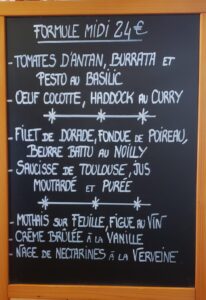 FORMULE MIDI 24€
- TOMATES D'ANTAN, BURRATA ET
PESTO AU BASILIC
- OEUF COCOTTE, HADDOCK AU CURRY
- FILET DE DORADE, FONDUE DE POIREAU,
BEURRE BATTU AU NOILLY
- SAUCISSE DE TOULOUSE, JUS
MOUTARDÉ ET PURÉE
- MOTHAIS SUR FEUILLE, FIGUE AU VIN
- CRÈME BRÛLÉE À LA VANILLE
- NAGE DE NECTARINES À LA VERVEINE